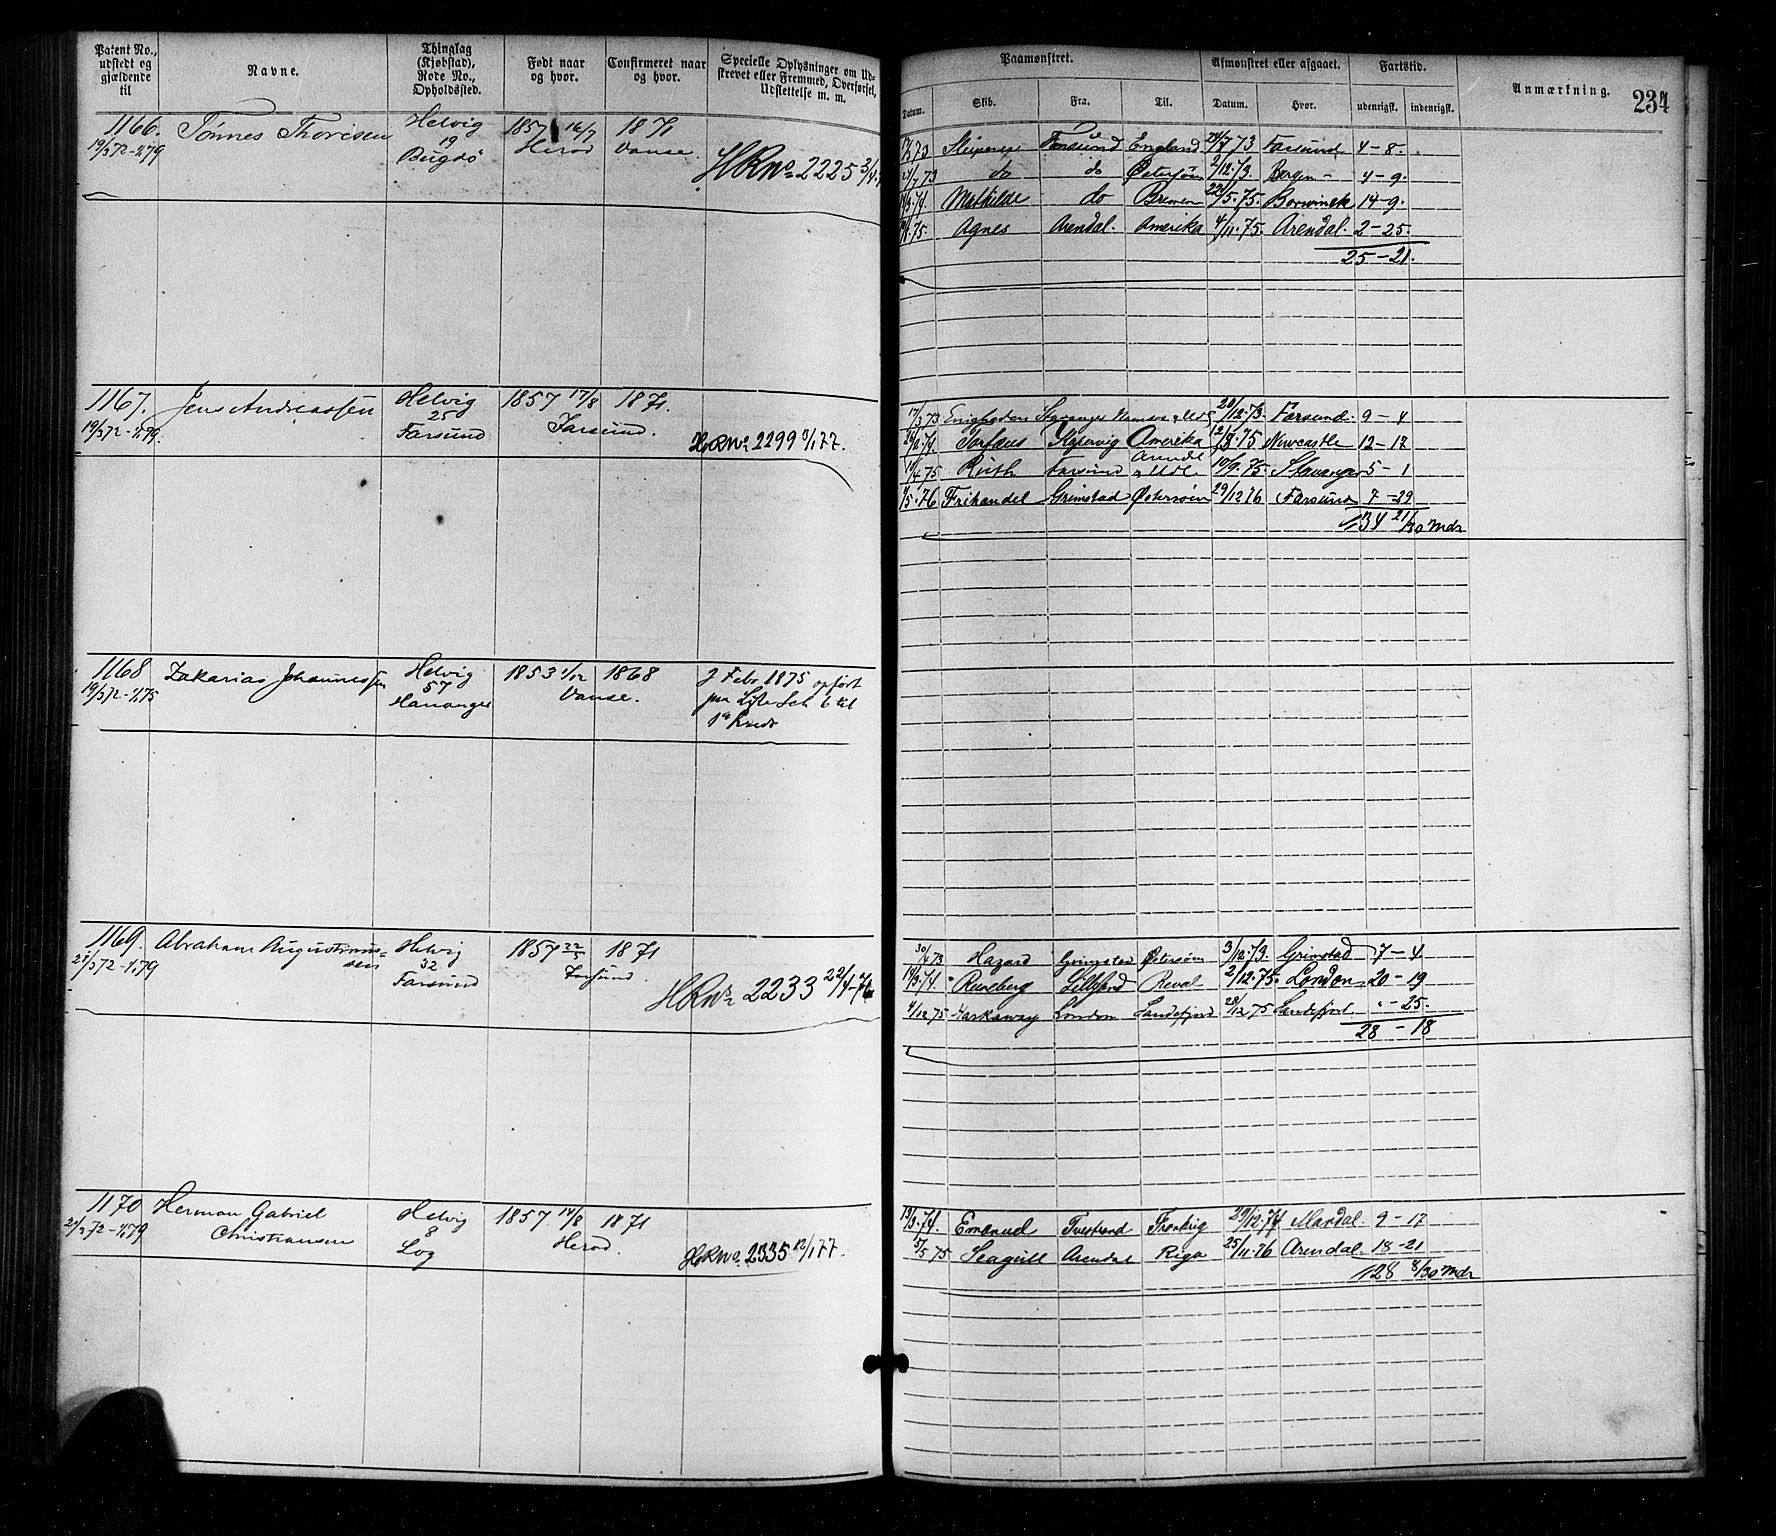 Patent No., udstedt og gjældende til
Navne.
Thinglag (Kjøbstad), Rode No., Opholdssted.
Født naar og hvor.
Confirmeret naar og hvor.
Specielle Oplysninger om Udskrevet eller Fremmed, Overførsel, Udslettelse m. m.
Paamønstret.
Afmønstret eller afgaaet.
Fartstid.
Anmærkning.
234
Datum. Skib. Fra. Til. Datum. Hvor. udenrigsk. indenrigsk.
1166. Tønnes Thorisen Helvig 1857 16/7 1871
19/3 72-1/1 79 19 Herod Vanse
Bugdø
HRNo 2225
73 Farsund England 73 Farsund 4-8.
24/7 73 do do Østersøen 2/12.73. Bergen 4-9.
Mathilde do Bremen 22/5.75. 14-9.
75. Agnes Arendal. Amerika 4/11.75. Arendal. 2-25.
25-21.
1167. Jens Andreassen Helvig 1857 17/8 1871.
19/3 72-1/1 79. 25 Farsund.
Farsund
HRNo 2299 3/1 77.
17/3 73 Stavanger 20/12.73. Farsund 9-4
Amerika 75 Newcastle 12-17
75 Ruth Farsund Arendal 10/9.75. Stavanger 5-1
76 Frihandel Grimstad Østersøen 29/12 76 Farsund 7-29
34 21/30 Mdr
1168 Zakarias Johannessen Helvig 1853 1/12 1868
19/3 72-1/1 75 57 Vanse.
Hananger
7 Febr 1875 opført
paa
1169. Abraham Augustinussen Helvig 1857 22/5 1871
21/3 72-1/1 79 32 Farsund.
Farsund
HRNo 2233
30/4 73 Hazard Grimstad Østersøen 3/12.73. Grimstad 7-4
Runeberg Reval 2/12.75. London 20-19
4/12 75 Harkaway London Sandefjord 28/12 75 Sandefjord -25.
28-18
1170 Herman Gabriel Christiansen Helvig 1857 14/8 1871
21/3 72-1/1 79 8 Herod.
Log
HRNo 2335 12/1 77.
Emanuel Tvestrand 29/12.74 Mandal. 9-17
75 Seagull Arendal Riga 25/11.76 Arendal. 18-21
28 8/30 Mdr